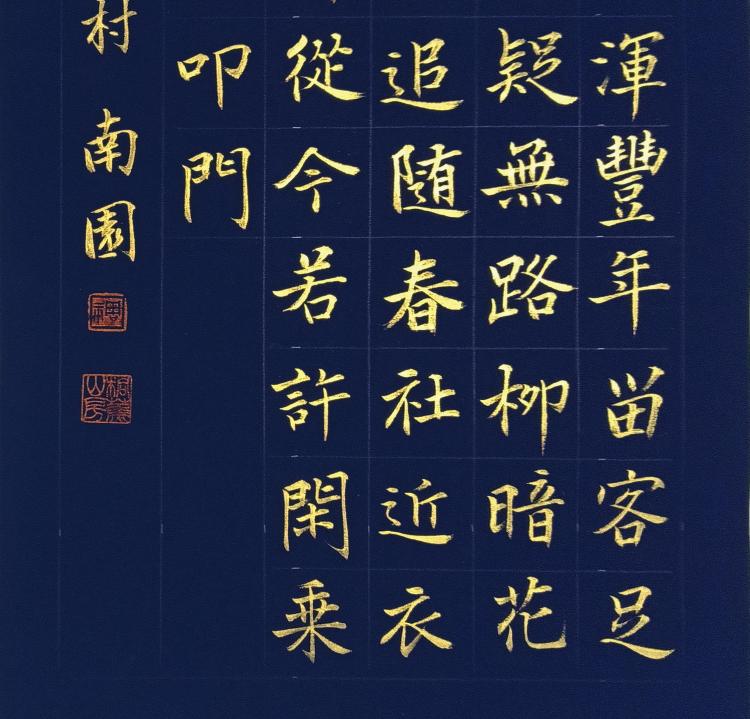 渾豐年畱客足
疑無路柳暗花
追隨春社近衣
從今若許閑乗
叩門
村 南園